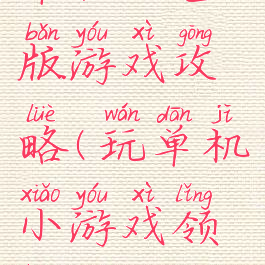 bǎn yóu xì gōng
版游戏攻
lüè wán dān jī
略(玩单机
xiǎo yóu xì lǐng
小游戏领